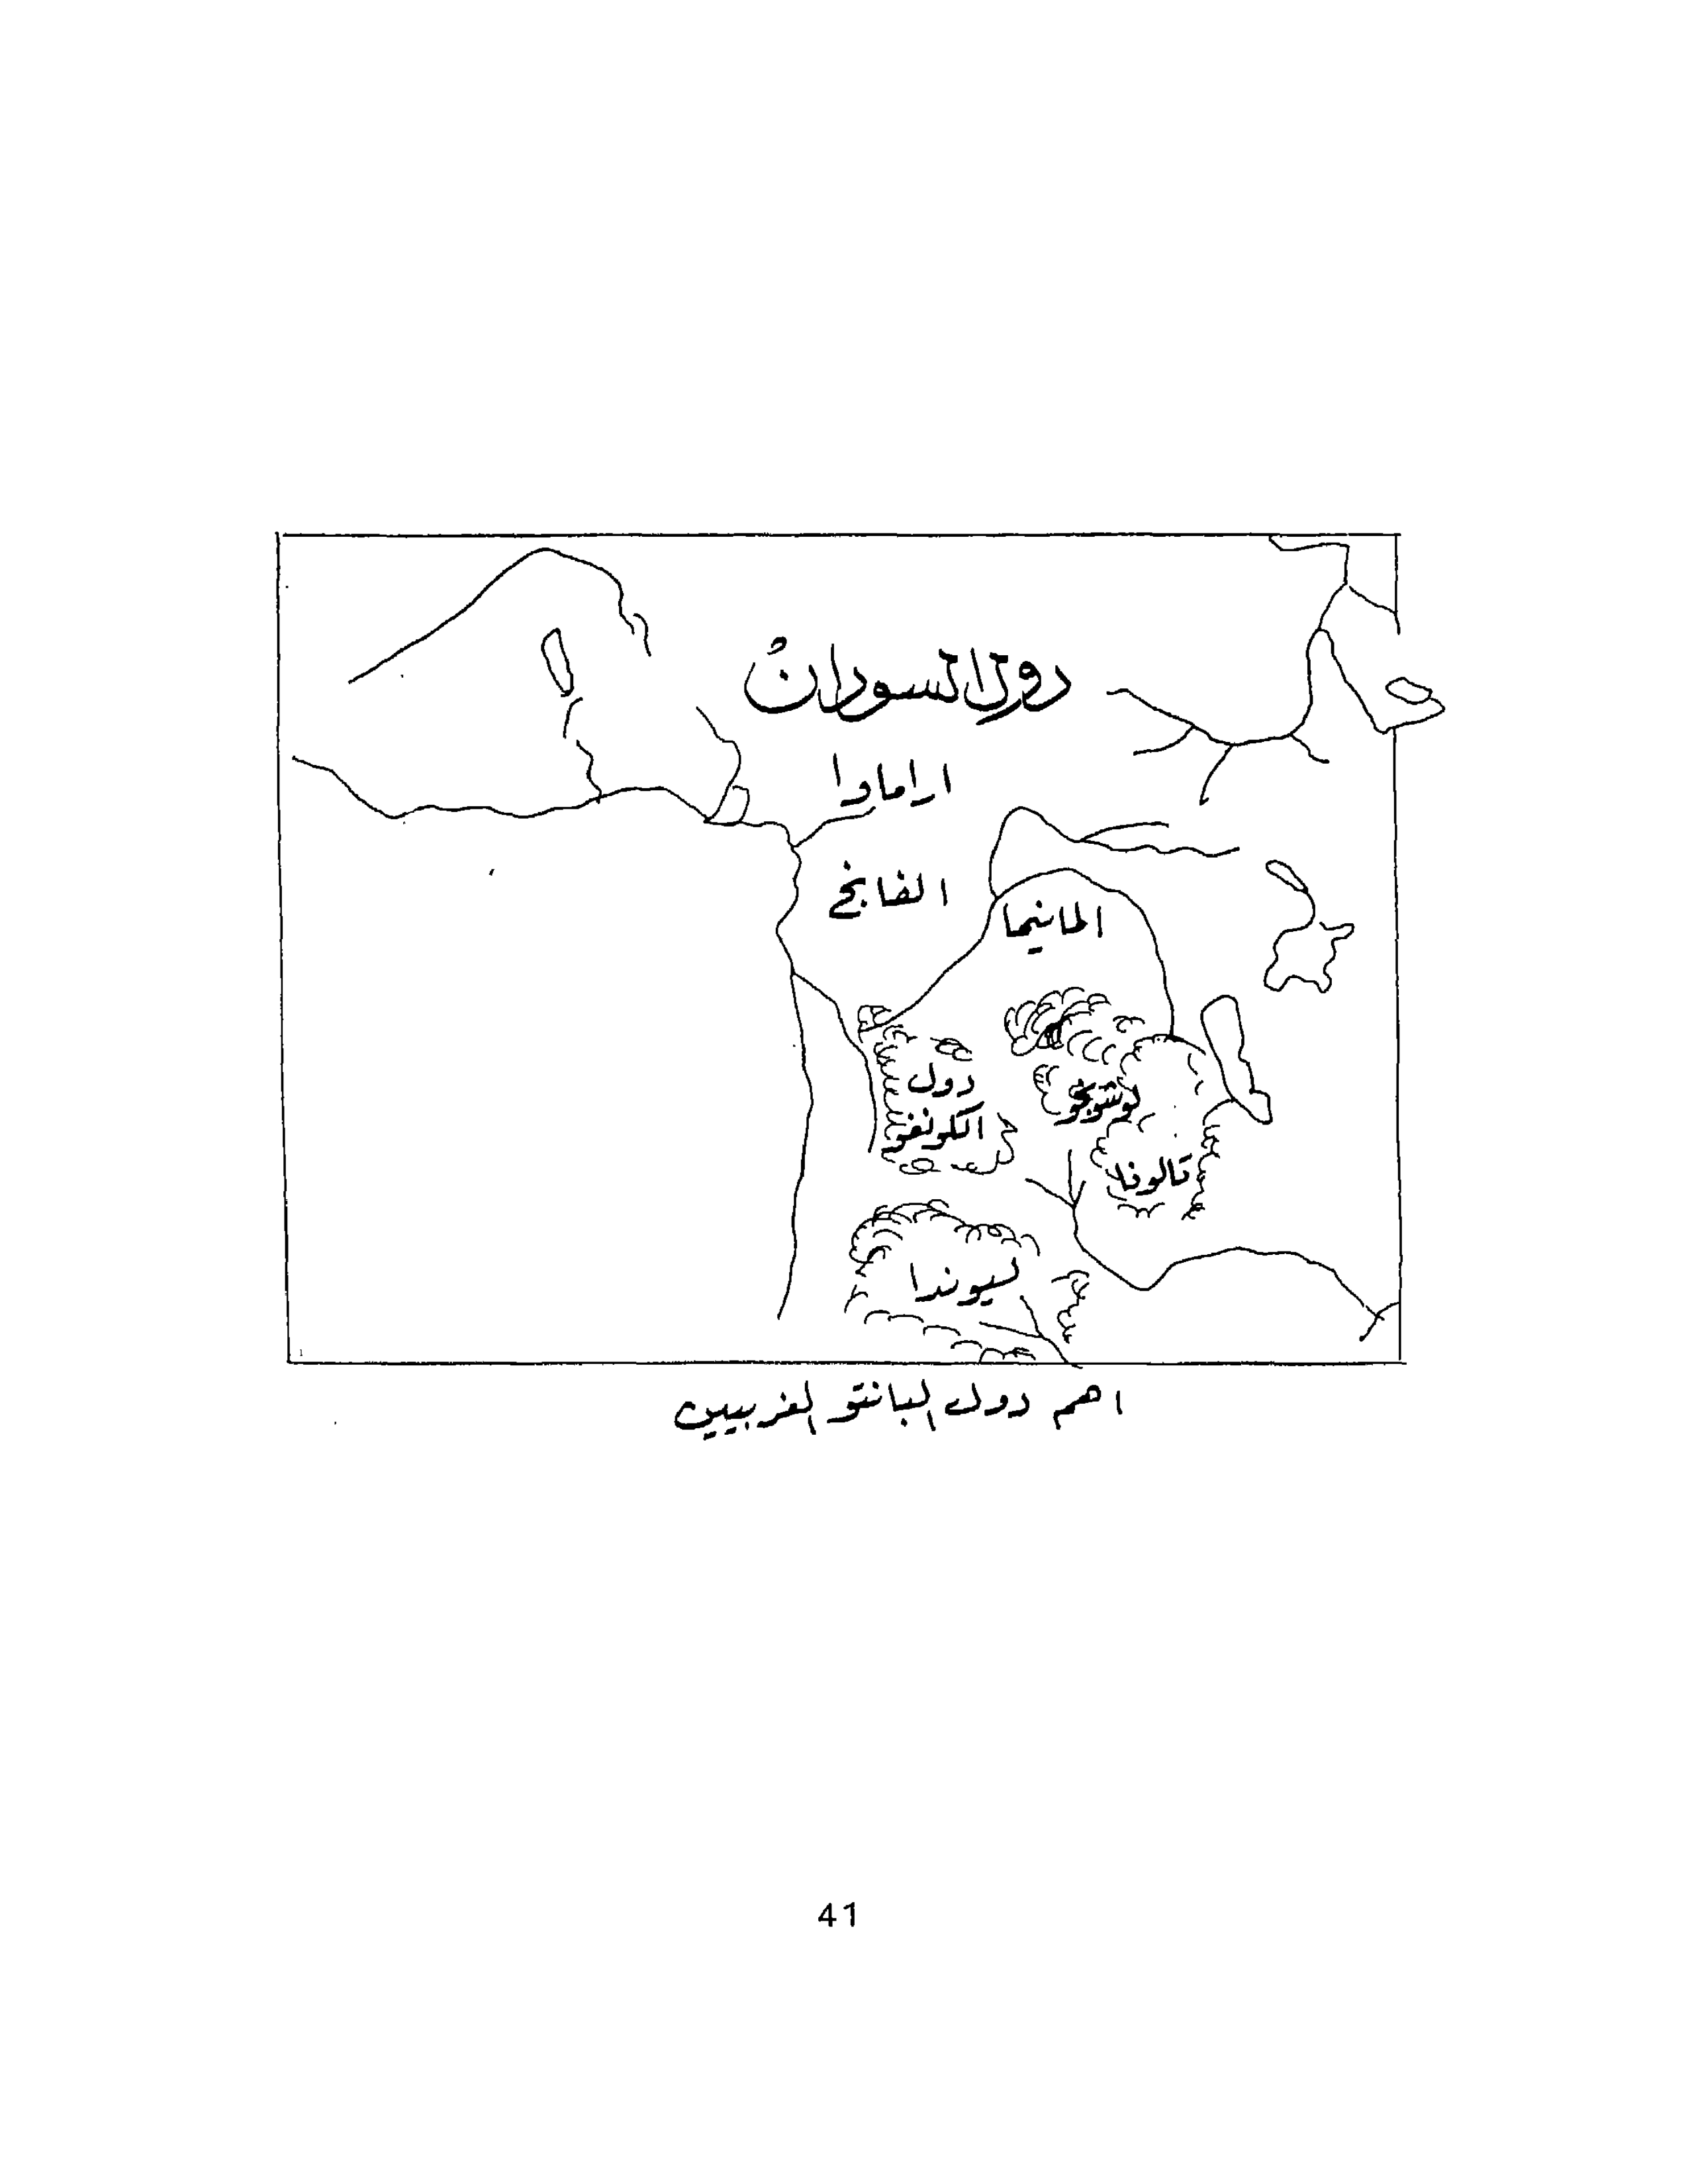 دول السودان
ارامادا
الفانج
المانيما
دول
الكونغو
لوشونجو
تالوفلا
ليوندا
اهم دول البانتو الغربيين
41